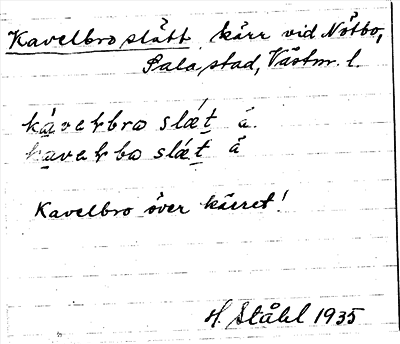 Kavelbroslätt, kärr vid Nötbo,
Sala stad, Västm. l.
kàvelbro slæt å.
kavelbo slæt å
Kavelbro över kärret!
H. Ståhl 1935